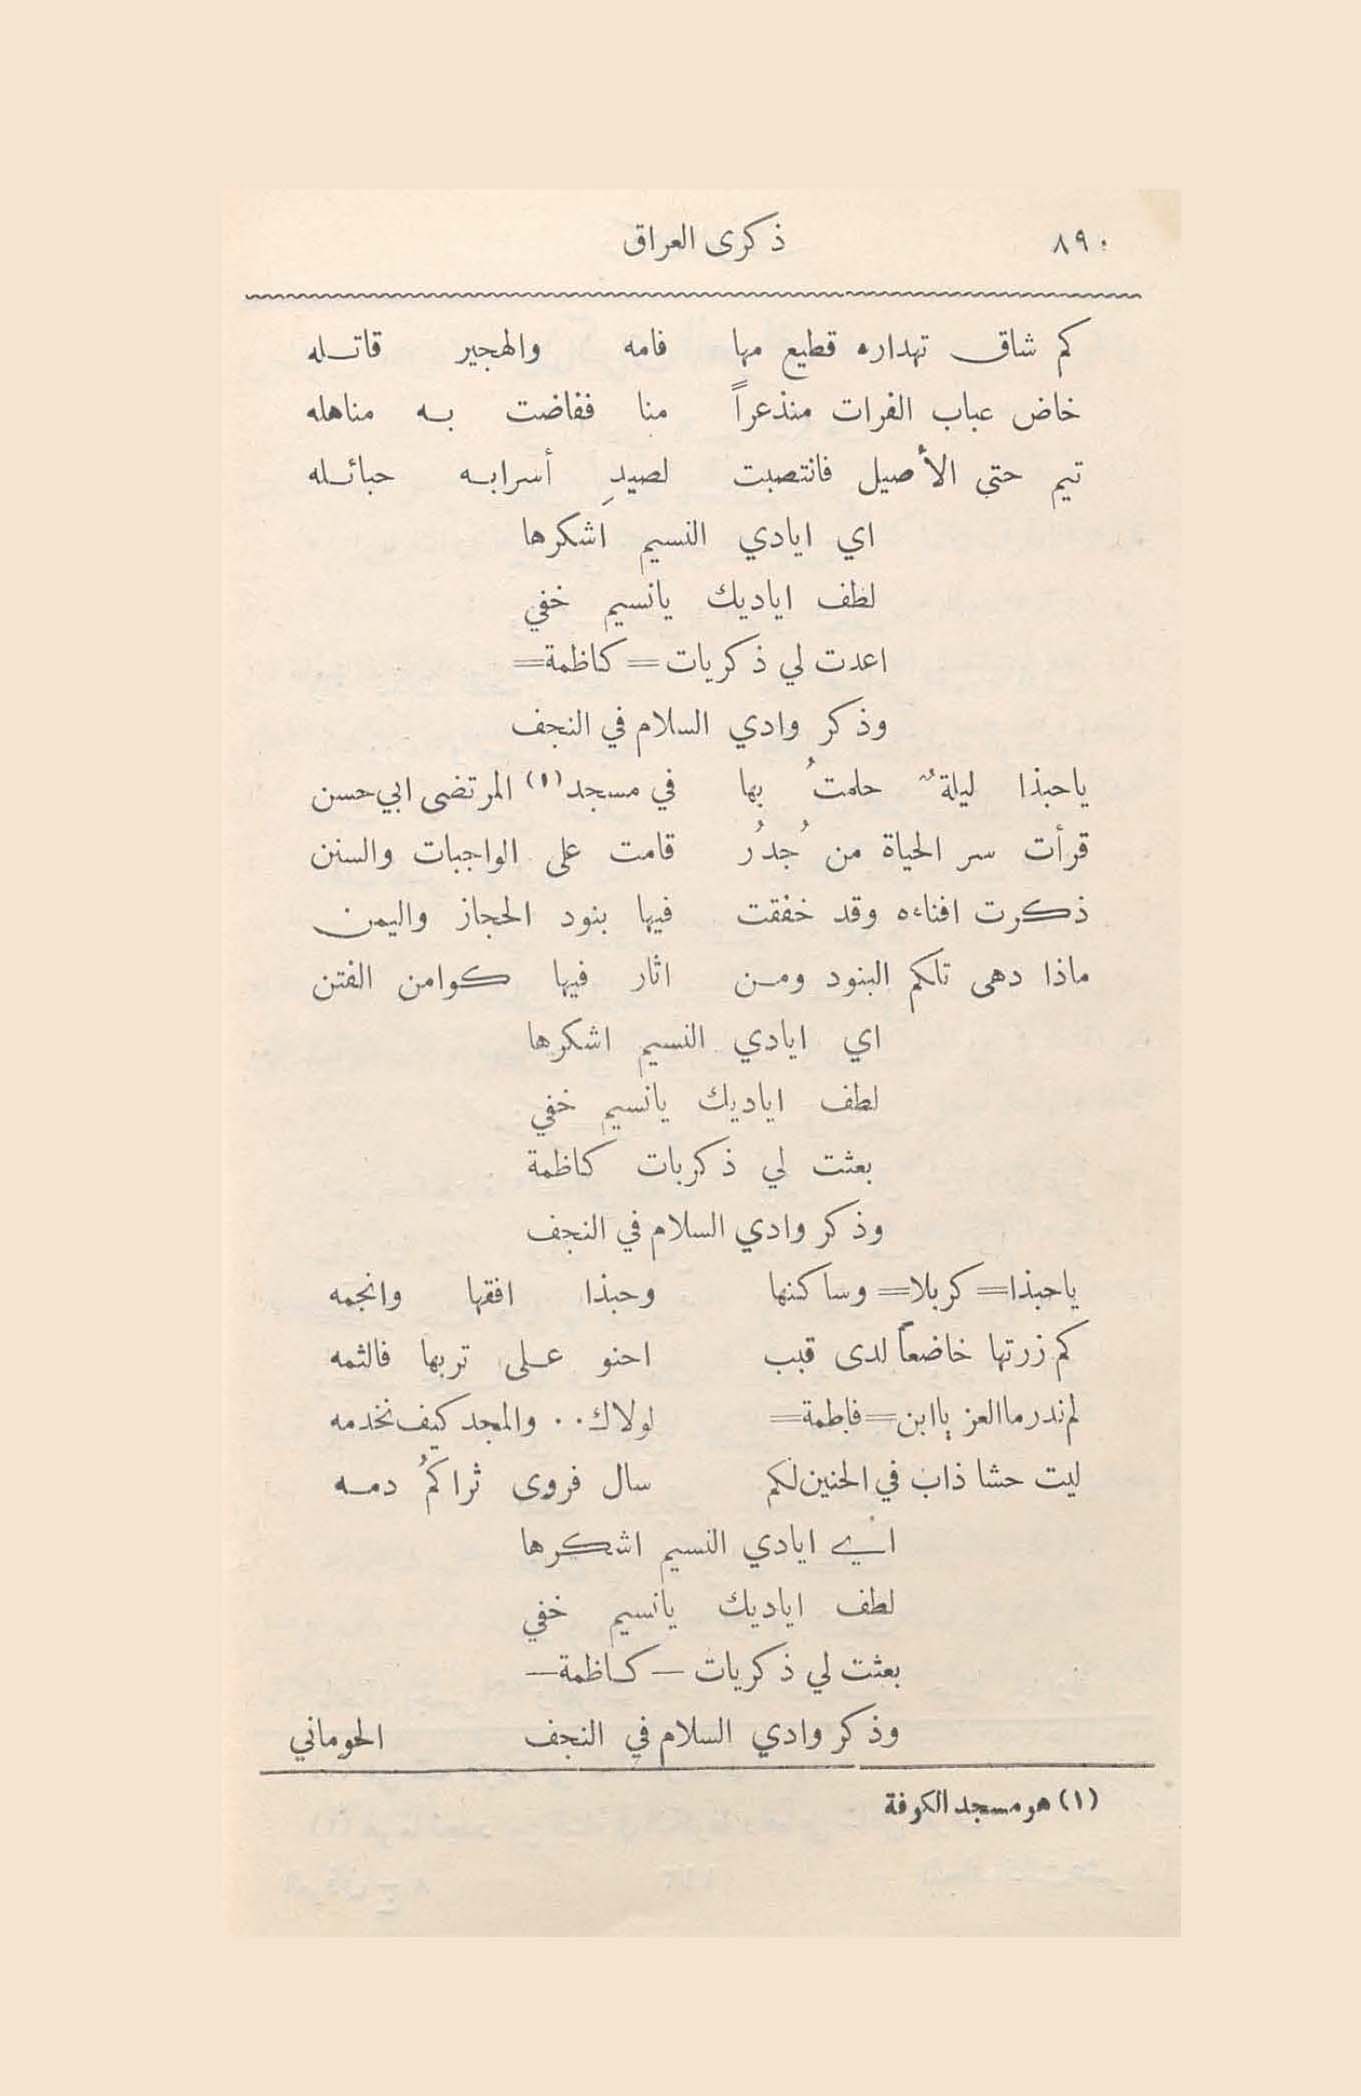 ٨٩٠ ذكرى العراق
كم شاق تهداره قطيع مها فامه والهجير قاتله
خاض عباب الفرات منذعراً منا ففاضت به مناهله
تيم حتى الأصيل فانتصبت لصيدِ أسرابه حبائله
اي ايادي النسيم اشكرها
لطف اياديك يانسيم خفي
اعدت لي ذكريات = كاظمة =
وذكر وادي السلام في النجف
ياحبذا ليلةٌ حلمتُ بها في مسجد (١) المرتضى ابي حسن
قرأت سر الحياة من جُدُر قامت على الواجبات والسنن
ذكرت افناءه وقد خفقت فيها بنود الحجاز واليمن
ماذا دهى تلكم البنود ومن اثار فيها كوامن الفتن
اي ايادي النسيم اشكرها
لطف اياديك يانسيم خفي
بعثت لي ذكريات كاظمة
وذكر وادي السلام في النجف
ياحبذا = كربلا = وساكنها وحبذا افقها وانجمه
كم زرتها خاضعاً لدى قبب احنو على تربها فالثمه
لم ندر ما العز ياابن = فاطمة = لولاك .. والمجد كيف نخدمه
ليت حشا ذاب في الحنين لكم سال فروى ثراكمُ دمه
اي ايادي النسيم اشكرها
لطف اياديك يانسيم خفي
بعثت لي ذكريات – كاظمة –
وذكر وادي السلام في النجف الحوماني
(١) هو مسجد الكوفة